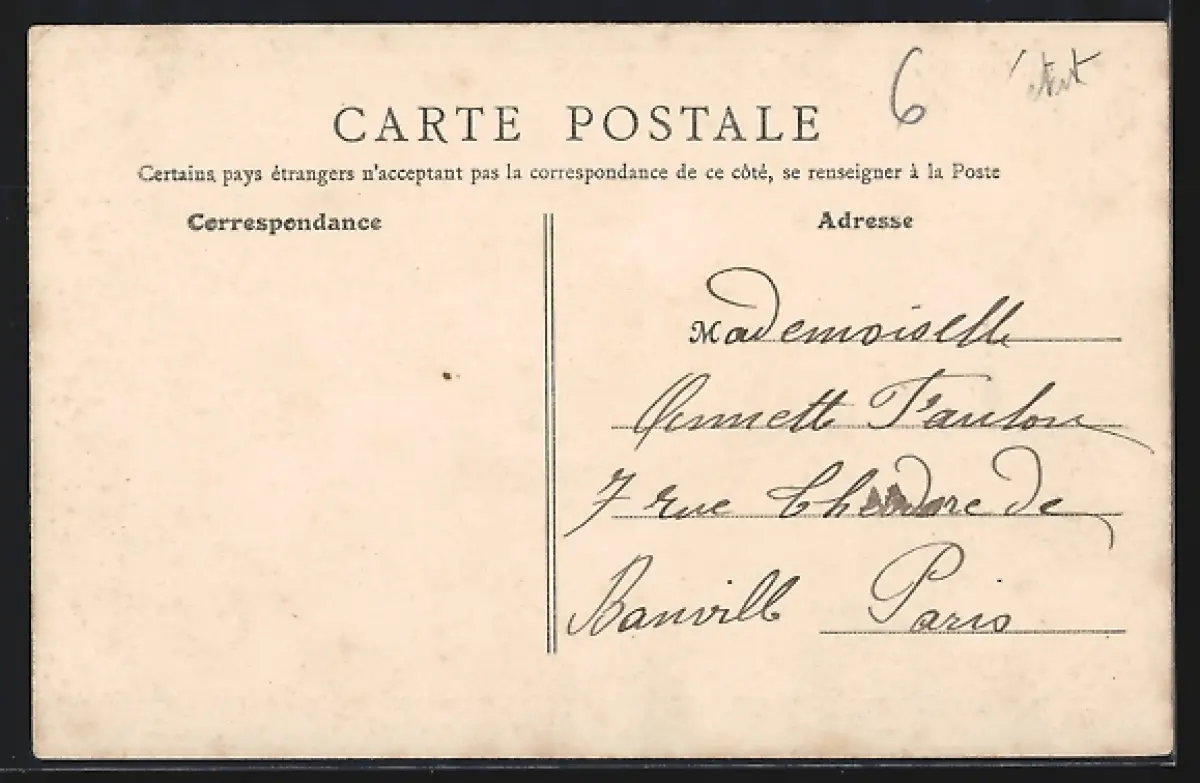 6
CARTE POSTALE
Certains pays étrangers n'acceptant pas la correspondance de ce côté, se renseigner à la Poste
Correspondance
Adresse
Mademoiselle
7 rue Théodore de
Banville Paris